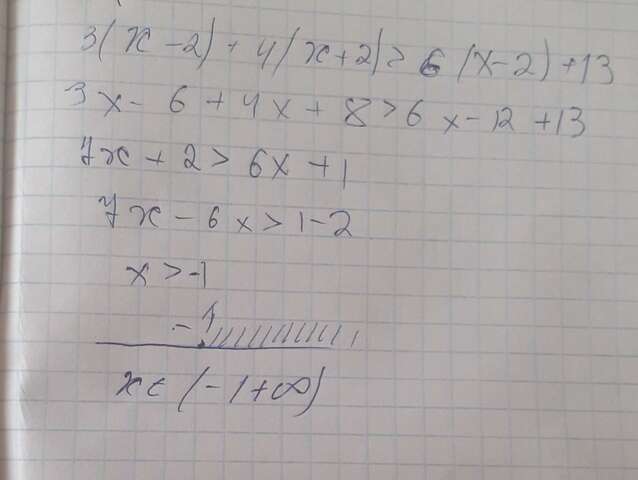 3(x-2)+4(x+2)>6(x-2)+13
3x-6+4x+8>6x-12+13
7x+2>6x+1
7x-6x>1-2
x>-1
-1
x∈(-1+∞)